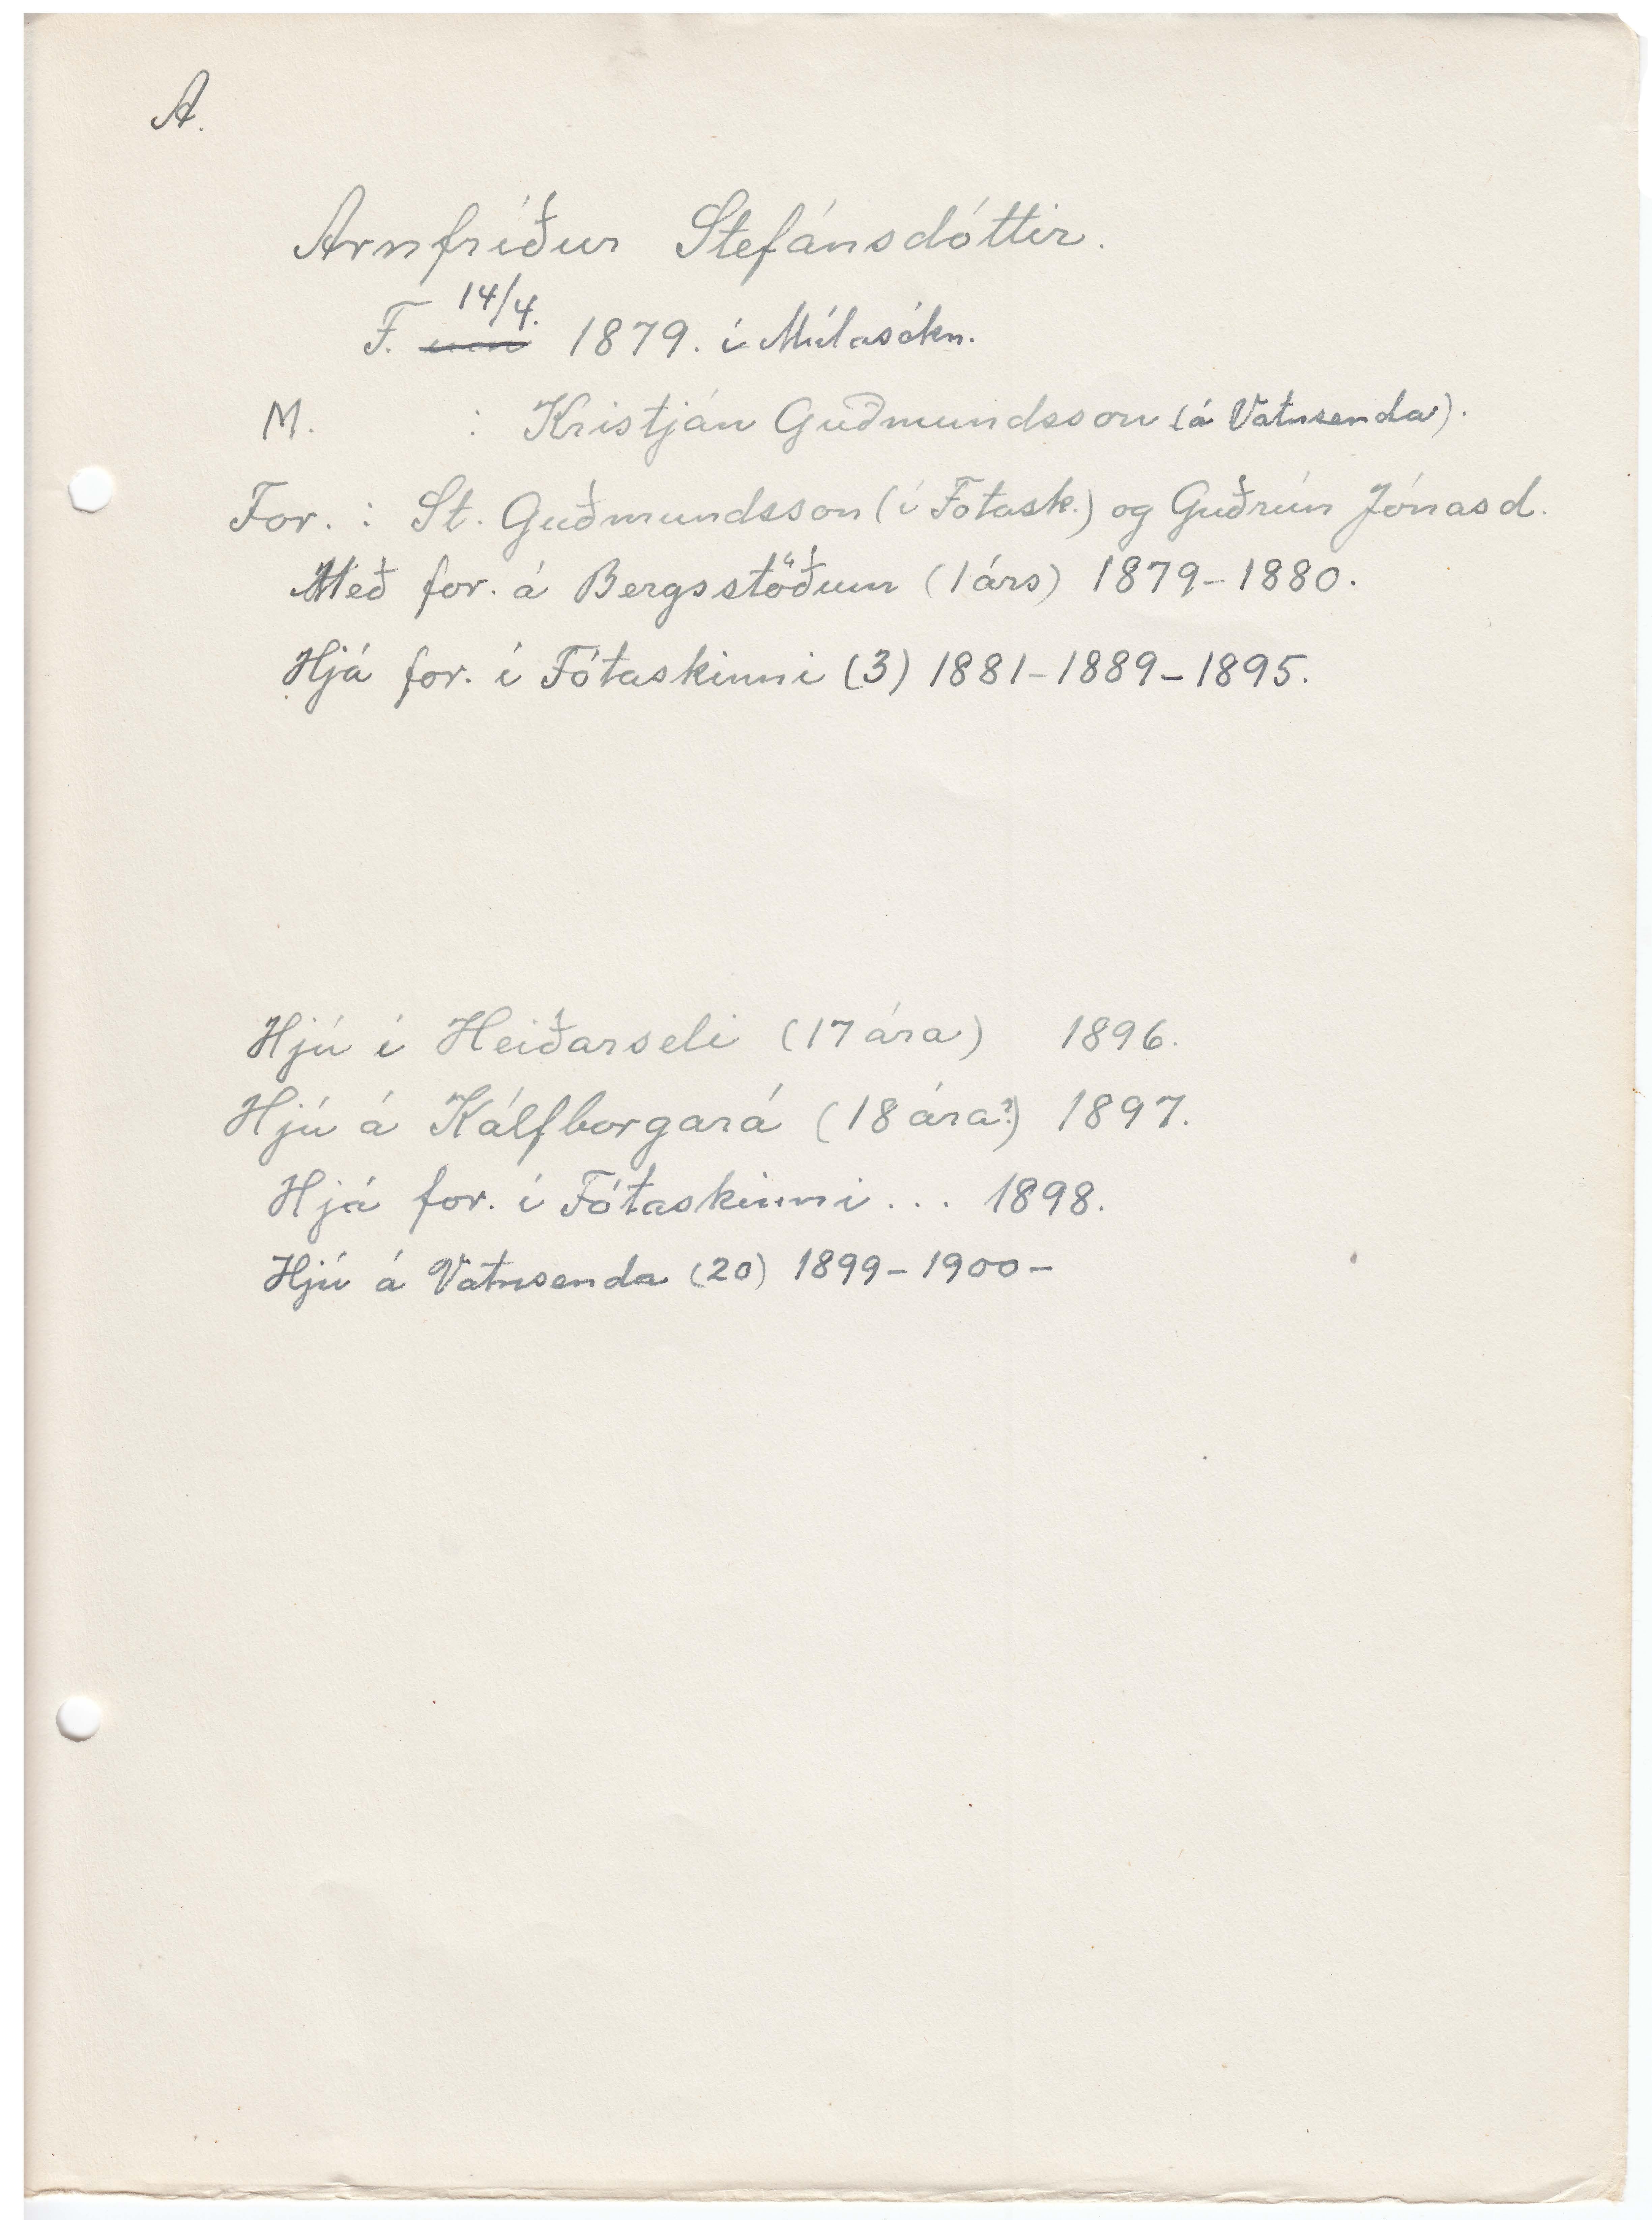 A.
Arnfríður Stefánsdóttir.
14/4.
F. 1879. í Múlasókn.
M. : Kristján Guðmundsson (á Vatnsenda).
For. : St. Guðmundsson (í Fótask.) og Guðrún Jónasd.
Með for. á Bergsstöðum (1 árs) 1879-1880.
Hjá for. í Fótaskinni (3) 1881-1889-1895.
Hjú í Heiðarseli (17 ára) 1896.
Hjú á Kálfborgará (18 ára?) 1897.
Hjá for. í Fótaskinni... 1898.
Hjú á Vatnsenda (20) 1899-1900-